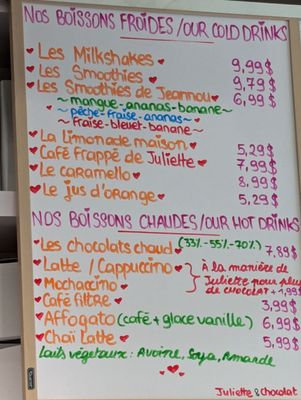 NOS BOISSONS FROIDES/OUR COLD DRINKS
Les Milkshakes 9,99$
Les Smoothies 9,79$
Les Smoothies de Jeannou 6,99$
~mangue-ananas-banane~
~pêche-fraise-ananas~
~fraise-bleuet-banane~
La limonade maison 5,29$
Café frappé de Juliette 7,99$
Le caramello 8,99$
Le jus d'orange 5,29$
NOS BOISSONS CHAUDES/OUR HOT DRINKS
Les chocolats chaud (33%-55%-70%) 7,89$
Latte / Cappuccino
Mochaccino
À la manière de
Juliette pour plus
de CHOCOLAT +1,99$
Café filtre 3,99$
Affogato (café + glace vanille) 6,99$
Chaï Latte 5,99$
Laits végétaux : Avoine, Soya, Amande
Juliette & Chocolat